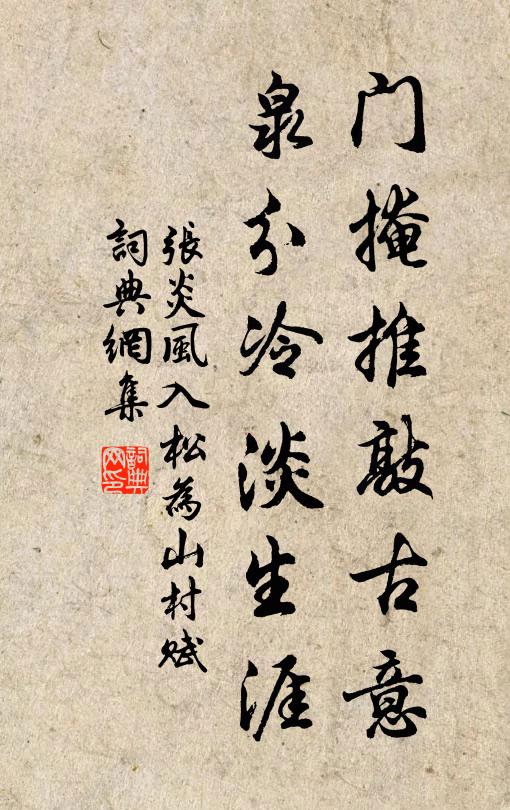 門掩推敲古意
泉分冷淡生涯
張炎風入松為山村賦
詞典網集
詞典網印